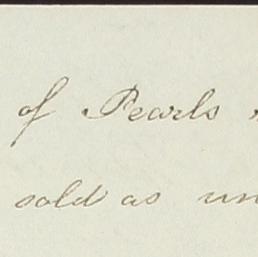 of Pearls
sold as